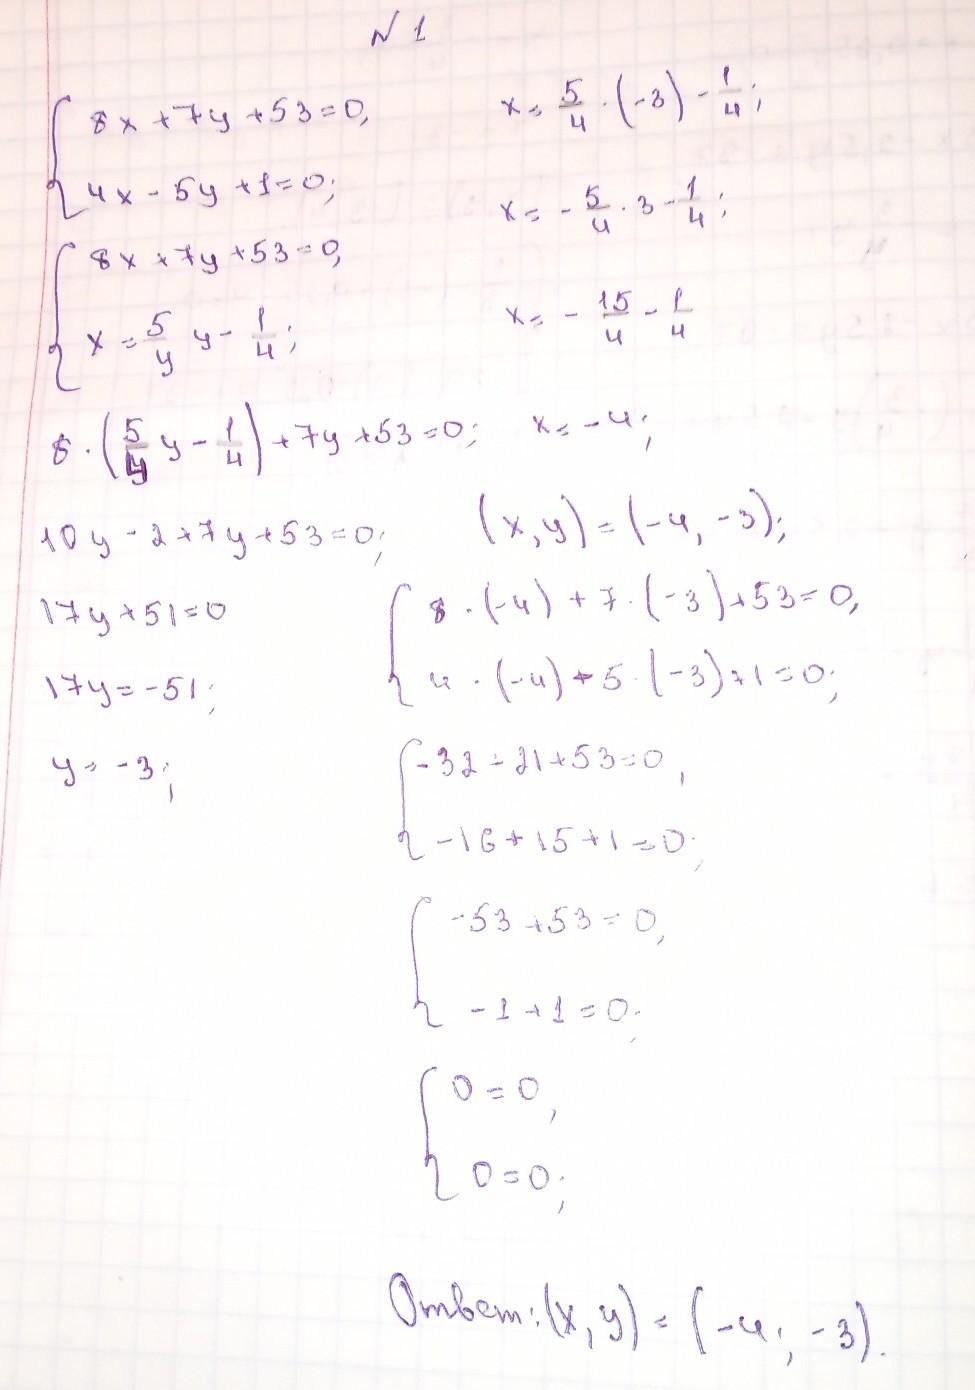 N 1
8x + 7y + 53 = 0,
4x - 5y + 1 = 0;
8x + 7y + 53 = 0,
x = 5/y y - 1/4;
8 · (5/4 y - 1/4) + 7y + 53 = 0;
10y - 2 + 7y + 53 = 0;
17y + 51 = 0
17y = -51;
y = -3;
x = 5/4 · (-3) - 1/4;
x = - 5/4 · 3 - 1/4;
x = - 15/4 - 1/4
x = -4;
(x, y) = (-4, -3);
8 · (-4) + 7 · (-3) + 53 = 0,
4 · (-4) + 5 · (-3) + 1 = 0;
-32 - 21 + 53 = 0,
-16 + 15 + 1 = 0;
-53 + 53 = 0,
-1 + 1 = 0;
0 = 0,
0 = 0;
Ответ: (x, y) = (-4; -3).